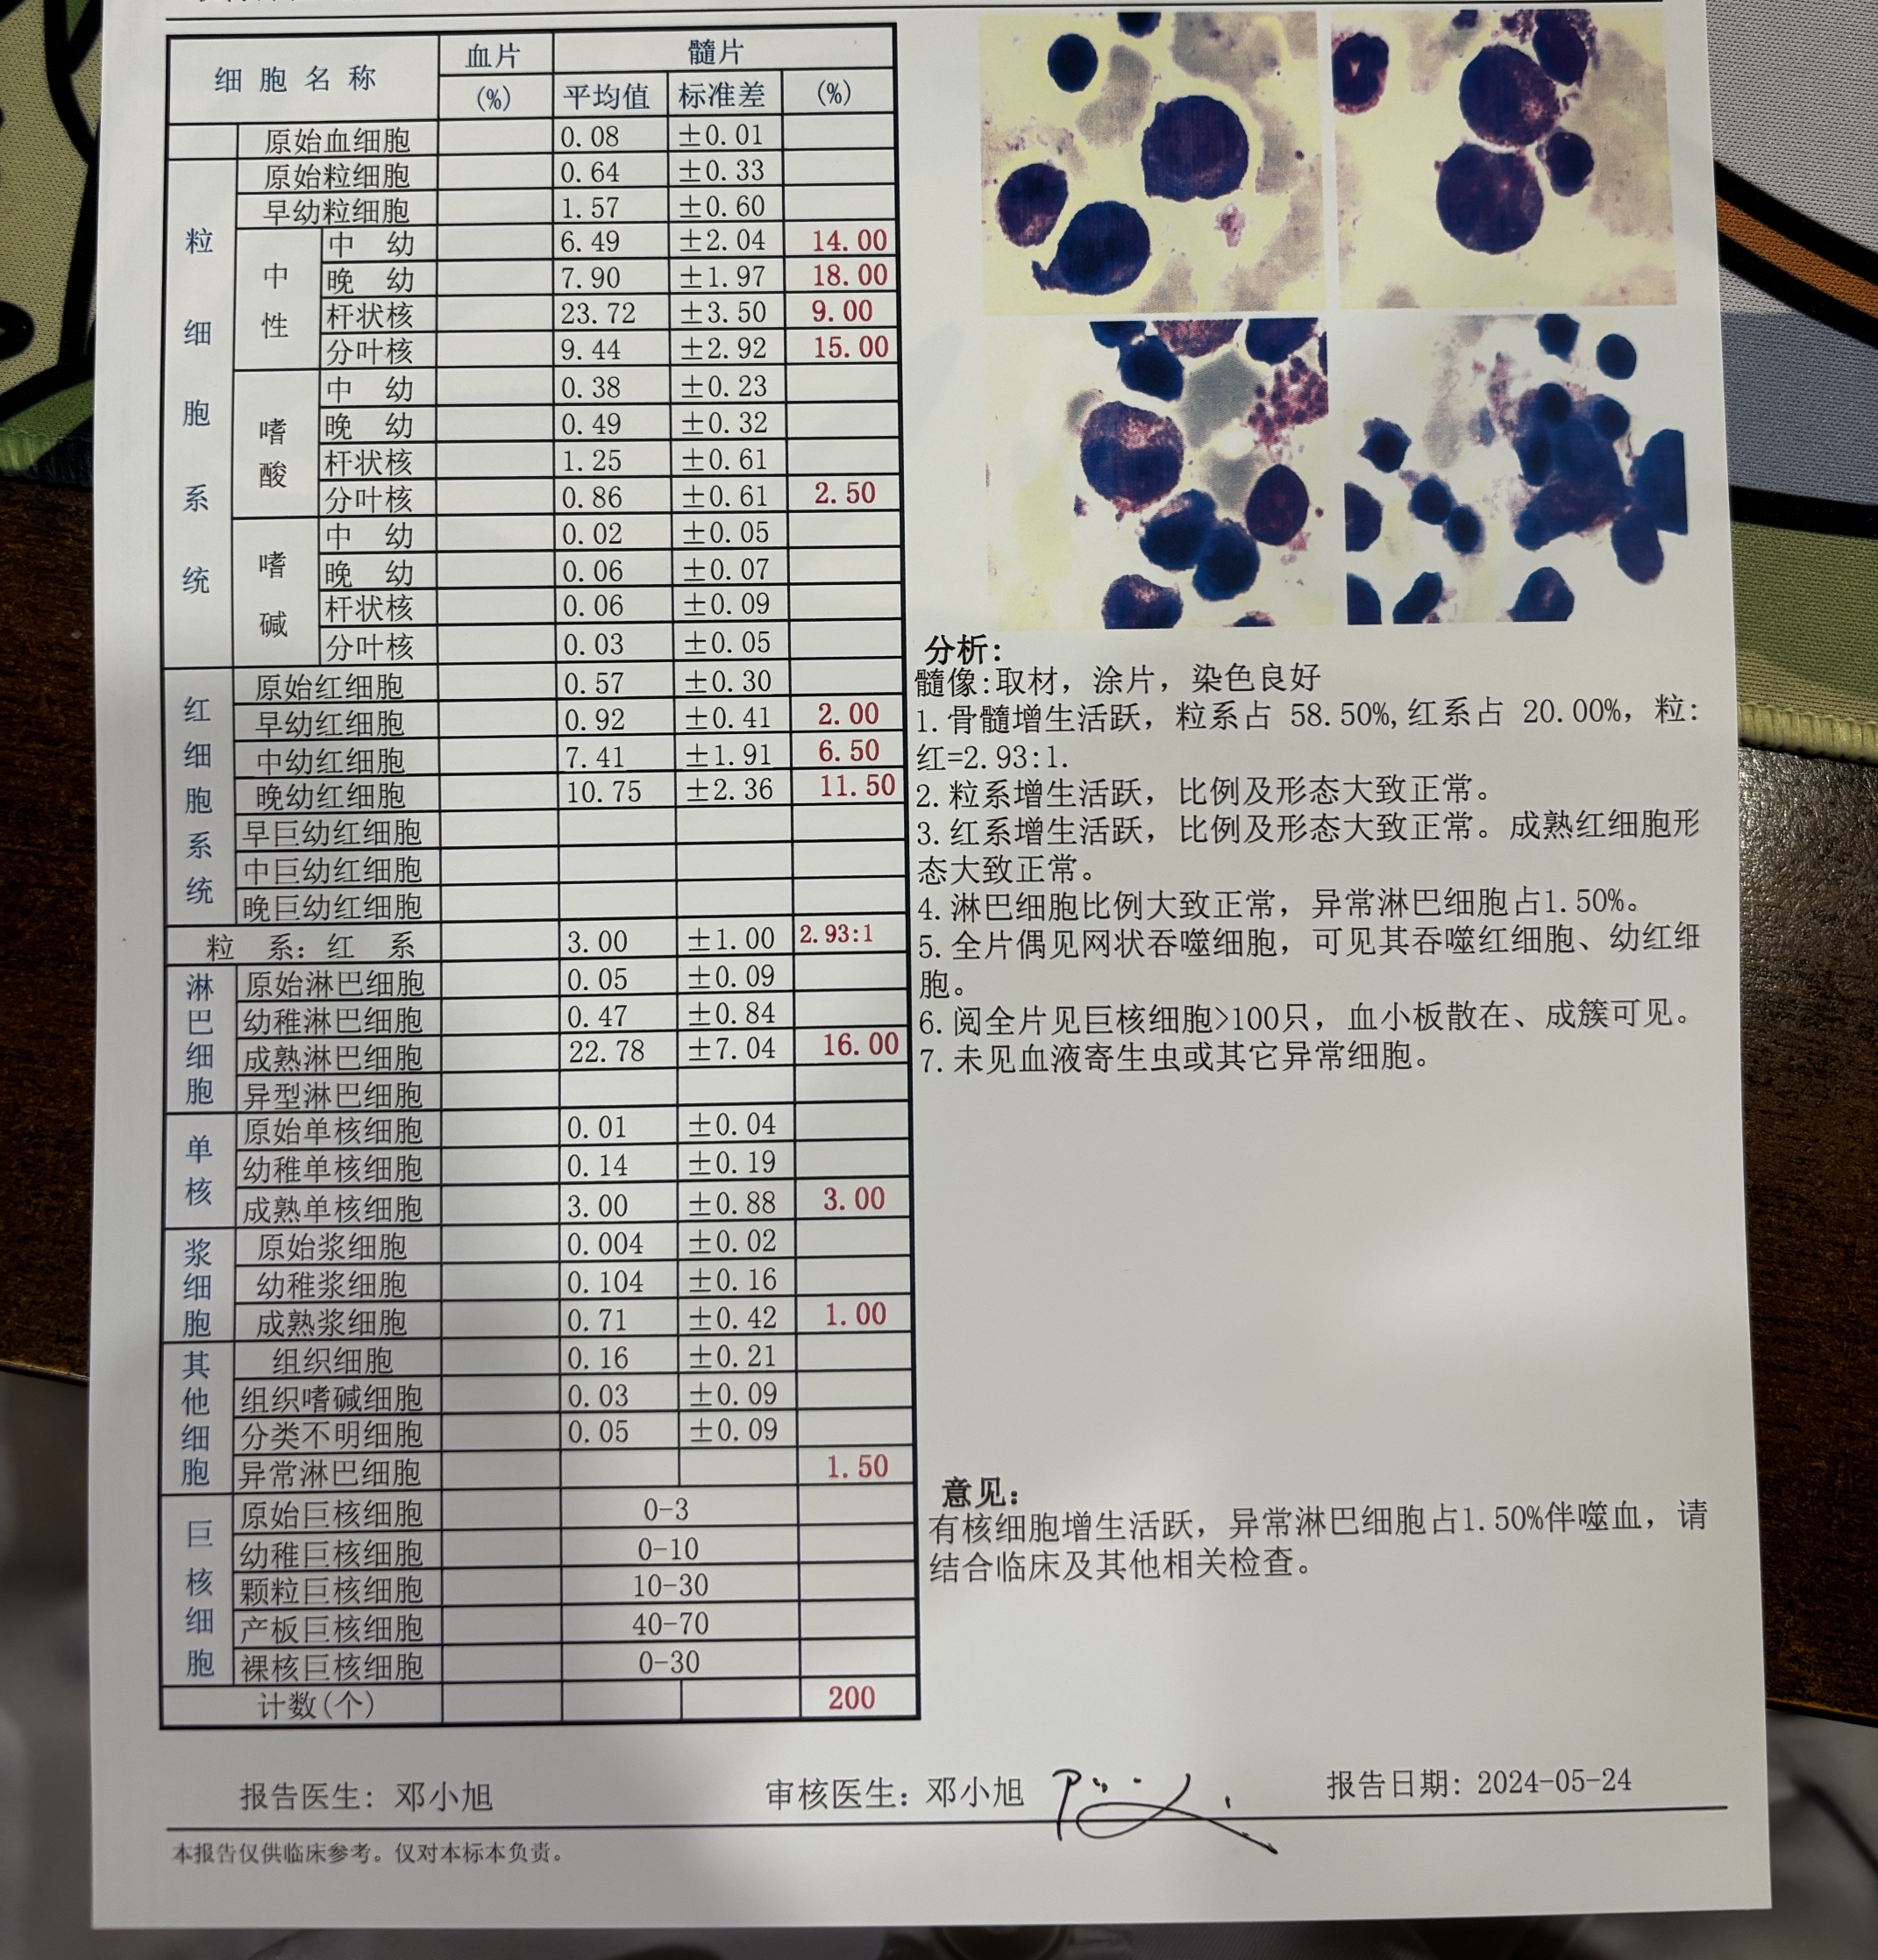 细胞名称 血片 髓片
(%) 平均值 标准差 (%)
原始血细胞 0.08 ±0.01
粒细胞系统
原始粒细胞 0.64 ±0.33
早幼粒细胞 1.57 ±0.60
中性
中幼 6.49 ±2.04 14.00
晚幼 7.90 ±1.97 18.00
杆状核 23.72 ±3.50 9.00
分叶核 9.44 ±2.92 15.00
嗜酸
中幼 0.38 ±0.23
晚幼 0.49 ±0.32
杆状核 1.25 ±0.61
分叶核 0.86 ±0.61 2.50
嗜碱
中幼 0.02 ±0.05
晚幼 0.06 ±0.07
杆状核 0.06 ±0.09
分叶核 0.03 ±0.05
红细胞系统
原始红细胞 0.57 ±0.30
早幼红细胞 0.92 ±0.41 2.00
中幼红细胞 7.41 ±1.91 6.50
晚幼红细胞 10.75 ±2.36 11.50
早巨幼红细胞
中巨幼红细胞
晚巨幼红细胞
粒系:红系 3.00 ±1.00 2.93:1
淋巴细胞
原始淋巴细胞 0.05 ±0.09
幼稚淋巴细胞 0.47 ±0.84
成熟淋巴细胞 22.78 ±7.04 16.00
异型淋巴细胞
单核
原始单核细胞 0.01 ±0.04
幼稚单核细胞 0.14 ±0.19
成熟单核细胞 3.00 ±0.88 3.00
浆细胞
原始浆细胞 0.004 ±0.02
幼稚浆细胞 0.104 ±0.16
成熟浆细胞 0.71 ±0.42 1.00
其他细胞
组织细胞 0.16 ±0.21
组织嗜碱细胞 0.03 ±0.09
分类不明细胞 0.05 ±0.09
异常淋巴细胞 1.50
巨核细胞
原始巨核细胞 0-3
幼稚巨核细胞 0-10
颗粒巨核细胞 10-30
产板巨核细胞 40-70
裸核巨核细胞 0-30
计数(个) 200
分析:
髓像:取材，涂片，染色良好
1.骨髓增生活跃，粒系占 58.50%,红系占 20.00%，粒:
红=2.93:1.
2.粒系增生活跃，比例及形态大致正常。
3.红系增生活跃，比例及形态大致正常。成熟红细胞形
态大致正常。
4.淋巴细胞比例大致正常，异常淋巴细胞占1.50%。
5.全片偶见网状吞噬细胞，可见其吞噬红细胞、幼红细
胞。
6.阅全片见巨核细胞>100只，血小板散在、成簇可见。
7.未见血液寄生虫或其它异常细胞。
意见:
有核细胞增生活跃，异常淋巴细胞占1.50%伴噬血，请
结合临床及其他相关检查。
报告医生: 邓小旭 审核医生: 邓小旭 报告日期: 2024-05-24
本报告仅供临床参考。仅对本标本负责。